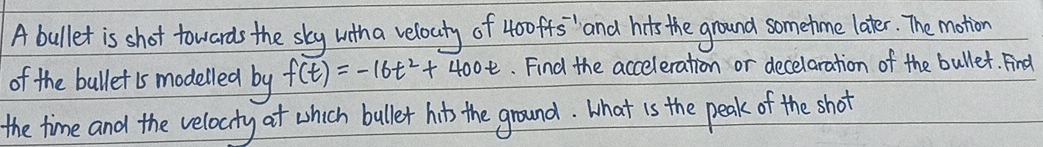 A bullet is shot towards the sky with a velocity of 400fts⁻¹ and hits the ground sometime later. The motion
of the bullet is modelled by f(t) = -16t² + 400t. Find the acceleration or decelaration of the bullet. Find
the time and the velocity at which bullet hits the ground. What is the peak of the shot